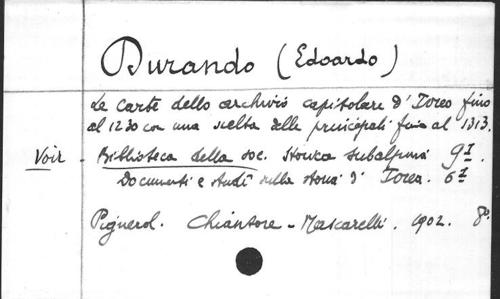 Durando (Edoardo)
Le carte dello archivio capitolare d'Ivrea fino
al 1230 con una scelta delle principali fino al 1313.
Voir - Biblioteca della soc. storica subalpina 9 I
Documenti e studi sulla storia d'Ivrea. 6 I
Pignerol. Chiantore - Mascarelli. 1902. 8o